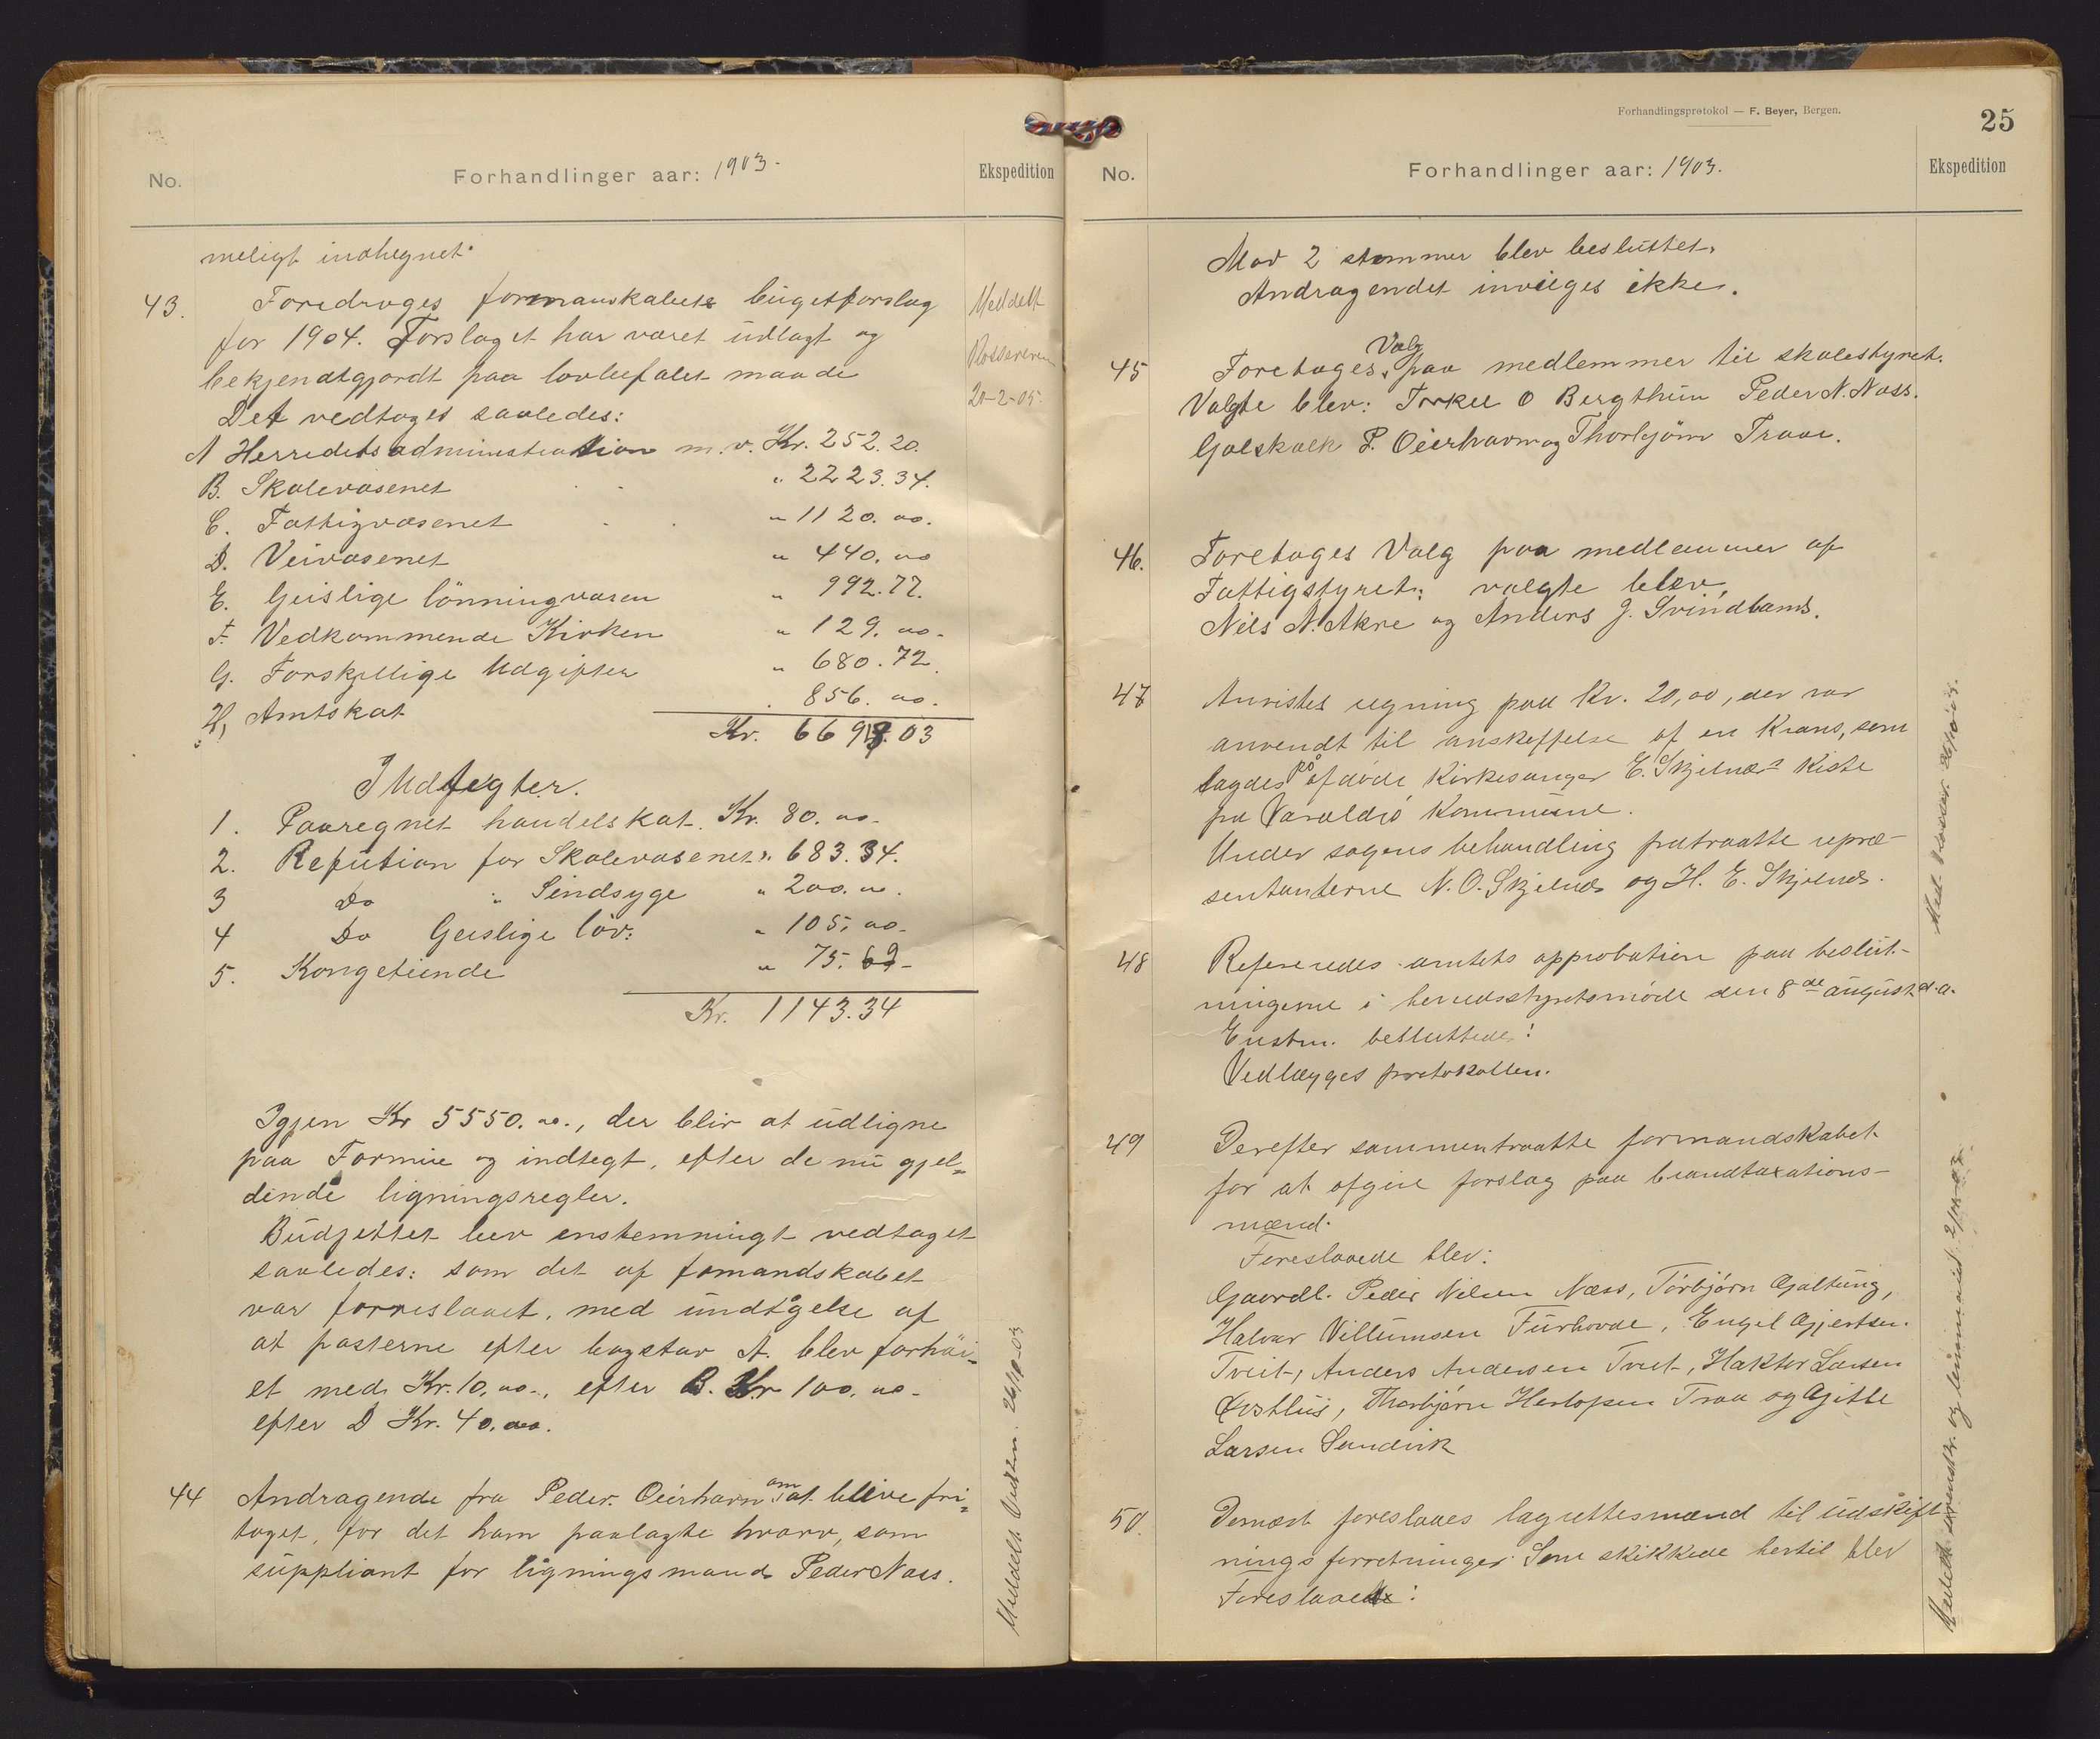 No.
Forhandlinger aar: 1903.
Ekspedition
meligt indhegnet.
43. Foredroges formanskabets bügetforslag
for 1904. Forslaget har været üdlagt og
bekjendtgjordt paa lovbefalet maade
Det vedtoges saaledes:
A Herredetsadministration m.v. Kr. 252.20.
B. Skolevæsenet " 2223.34.
C. Fattigvæsenet " 1120.00.
D. Veivæsenet " 440.00
E. Geislige lönningvæsen " 992.77.
F. Vedkommende Kirken " 129.00.
G. Forskjellige Udgifter " 680.72.
H, Amtskat 856.00.
Kr. 6693.03
Indtegter.
1. Paaregnet handelskat. Kr. 80.00.
2. Refution for Skolevæsenet " 683.34.
3 Do " Sindsyge " 200.00.
4 Do Geislige löv: " 105,00.
5. Kongetiende " 75.69
Kr. 1143.34
Igjen Kr 5550.00., der blir at üdligne
paa Formüe og indtegt, efter de nü gjel=
dende ligningsregler.
Büdjettet blev enstemmingt vedtaget
saaledes: som det af fomandskabet
var forreslaaet, med ündtgelse af
at posterne efter bogstav A. blev forhöi=
et med Kr. 10.00., efter B. Kr 100.00.
efter D Kr. 40.00.
44 Andragende fra Peder Oeierhavn om at blive fri=
taget, for det ham paalagte hværv, som
süppliant for ligningsmand Peder Næss.
Meddelt
20-2-05.
Meddelt Vedkm. 26/10-03
Forhandlingsprotokol — F. Beyer, Bergen.
25
No.
Forhandlinger aar: 1903.
Ekspedition
Mod 2 stemmer blev beslüttet.
Andragendet invilges ikke.
45 Foretoges Valg paa medlemmer til skolestyret.
Valgte blev: Torkel O Bergthün Peder N. Næss.
Golskalk P. Oeierhavn og Thorbjörn Traae.
46. Foretoges Valg paa medlemmer af
Fattigstyret: valgte blev,
Nils N. Akre og Anders J. Svindland.
47 Anvistes regning paa Kr. 20,00, der var
anvendt til anskaffelse af en Krans, som
lagdes på afdøde Kirkesanger E. Skjelnæs Kiste
fra Varaldsø Kommune.
Under sagens behandling fratraatte repræ-
sentanterne N. O. Skjelnæs og H. E. Skjelnæs.
48 Refereredes amtets approbation paa beslut-
ningerne i herredsstyretsmøde den 8de august d.a.
Enstm. besluttedes:
Vedlægges protokollen.
49 Derefter sammentraatte formandskabet
for at afgive forslag paa brandtaxations-
mænd.
Foreslaaede blev:
Gaardbr. Peder Nilsen Næss, Torbjørn Gjaltung,
Halvar Villumsen Furhovde, Engel Gjertsen
Tveit, Anders Andersen Tveit, Haktor Larsen
Østhus, Thorbjørn Herlofsen Traa og Gitle
Larsen Sandvik
50. Dernæst foreslaaes lagrettesmænd til udskift-
ningsforretninger. Som skikkede hertil blev
Foreslaaet:
Med. Kasser. 26/10-03.
2/11-03